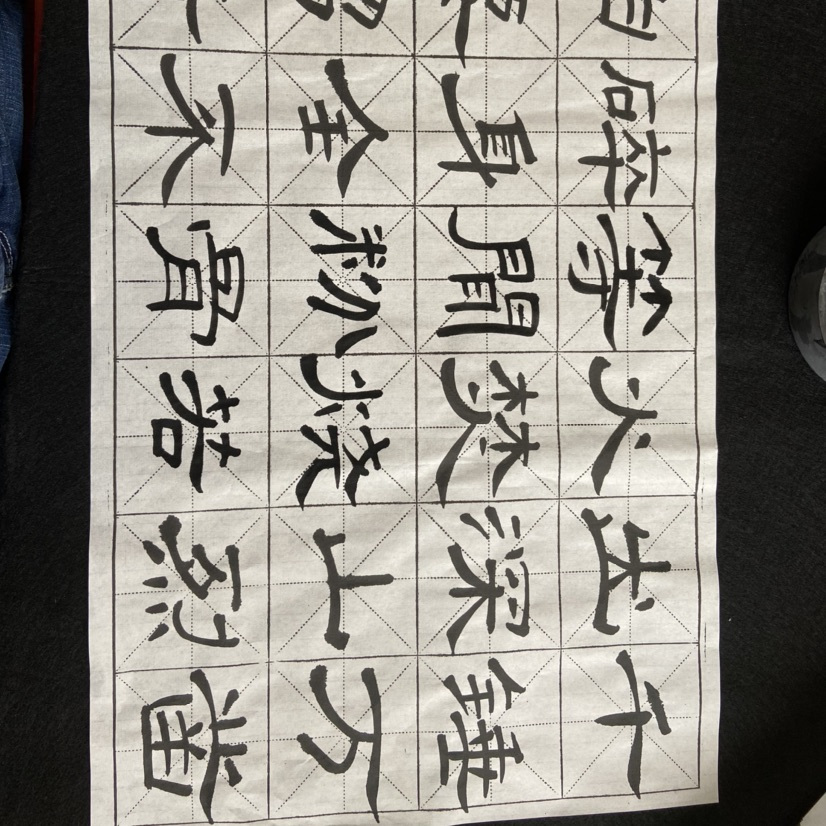 千錘万凿
出深山烈
火焚烧若
等間粉骨
碎身全不